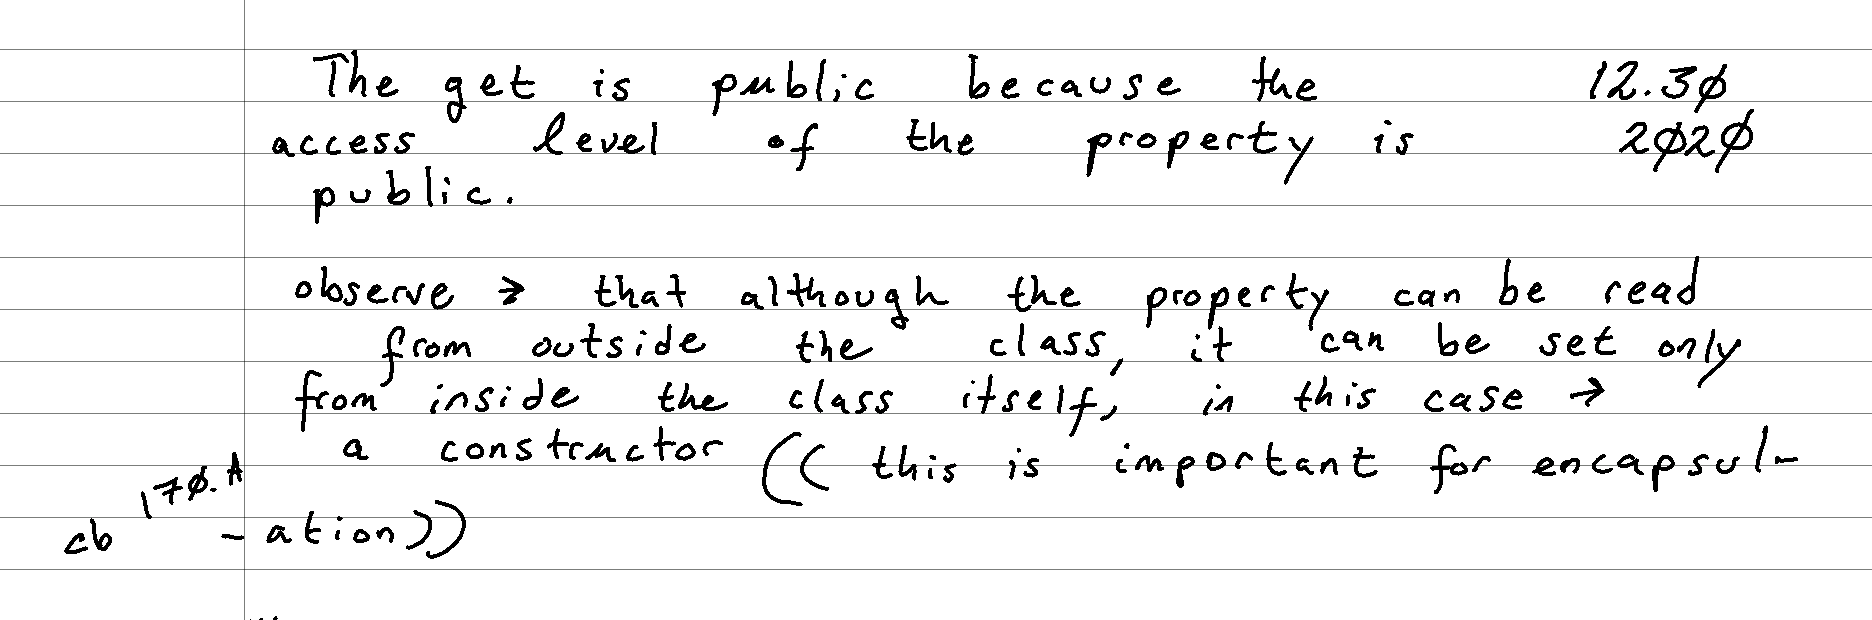 The get is public because the 12.3Ø
access level of the property is 2Ø2Ø
public.
observe → that although the property can be read
from outside the class, it can be set only
from inside the class itself, in this case →
a constructor (( this is important for encapsul-
17Ø.A
cb -ation))